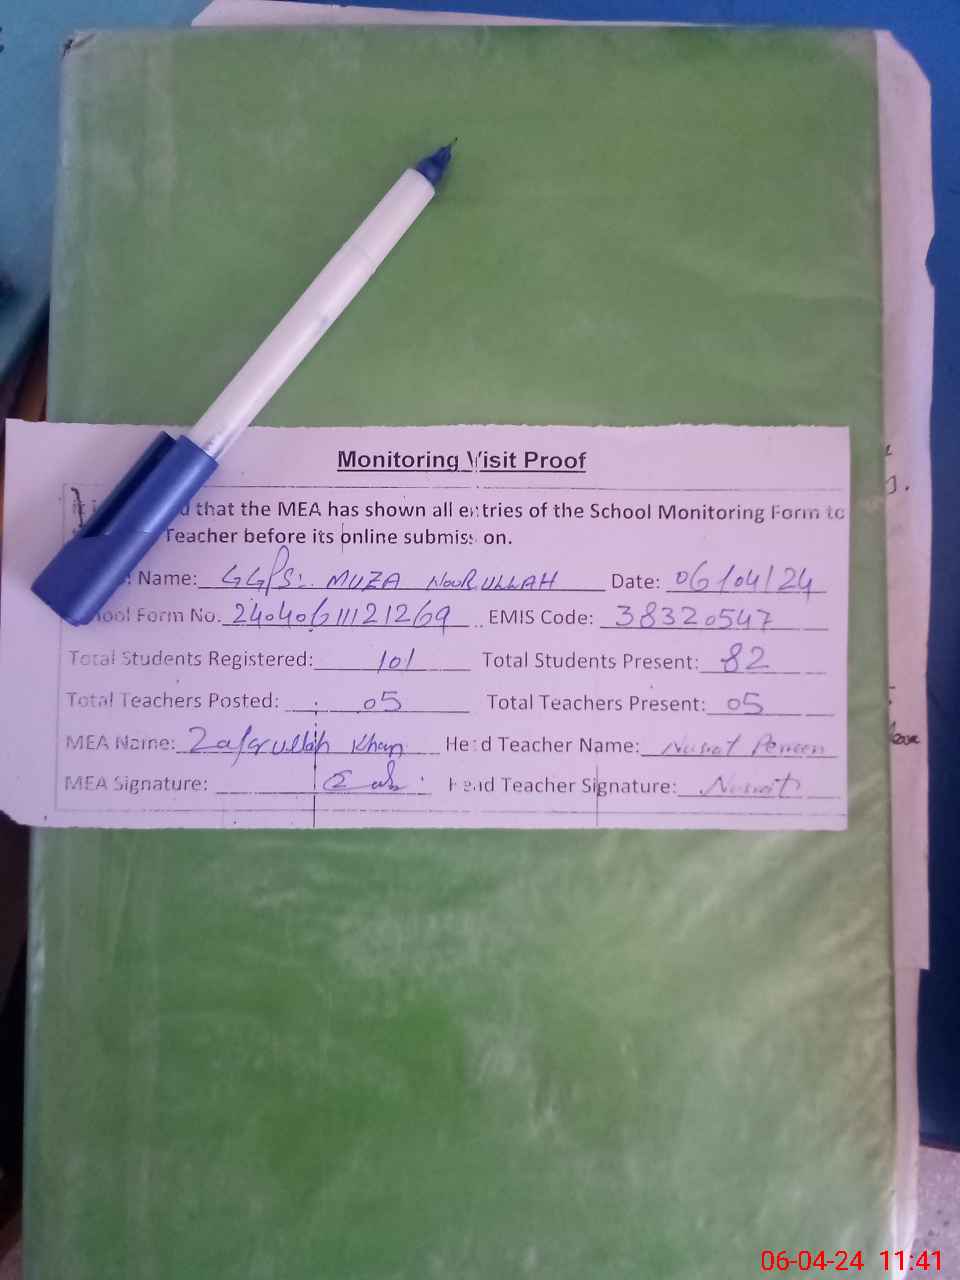 Monitoring Visit Proof
that the MEA has shown all entries of the School Monitoring Form to
Teacher before its online submission.
Name: GGPS: MUZA NOORULLAH Date: 06/04/24
School Form No. 2404061121269 EMIS Code: 38320547
Total Students Registered: 101 Total Students Present: 82
Total Teachers Posted: 05 Total Teachers Present: 05
MEA Name: Zafarullah Khan Head Teacher Name: Nusrat Perveen
MEA Signature: Head Teacher Signature: Nusrat
06-04-24 11:41